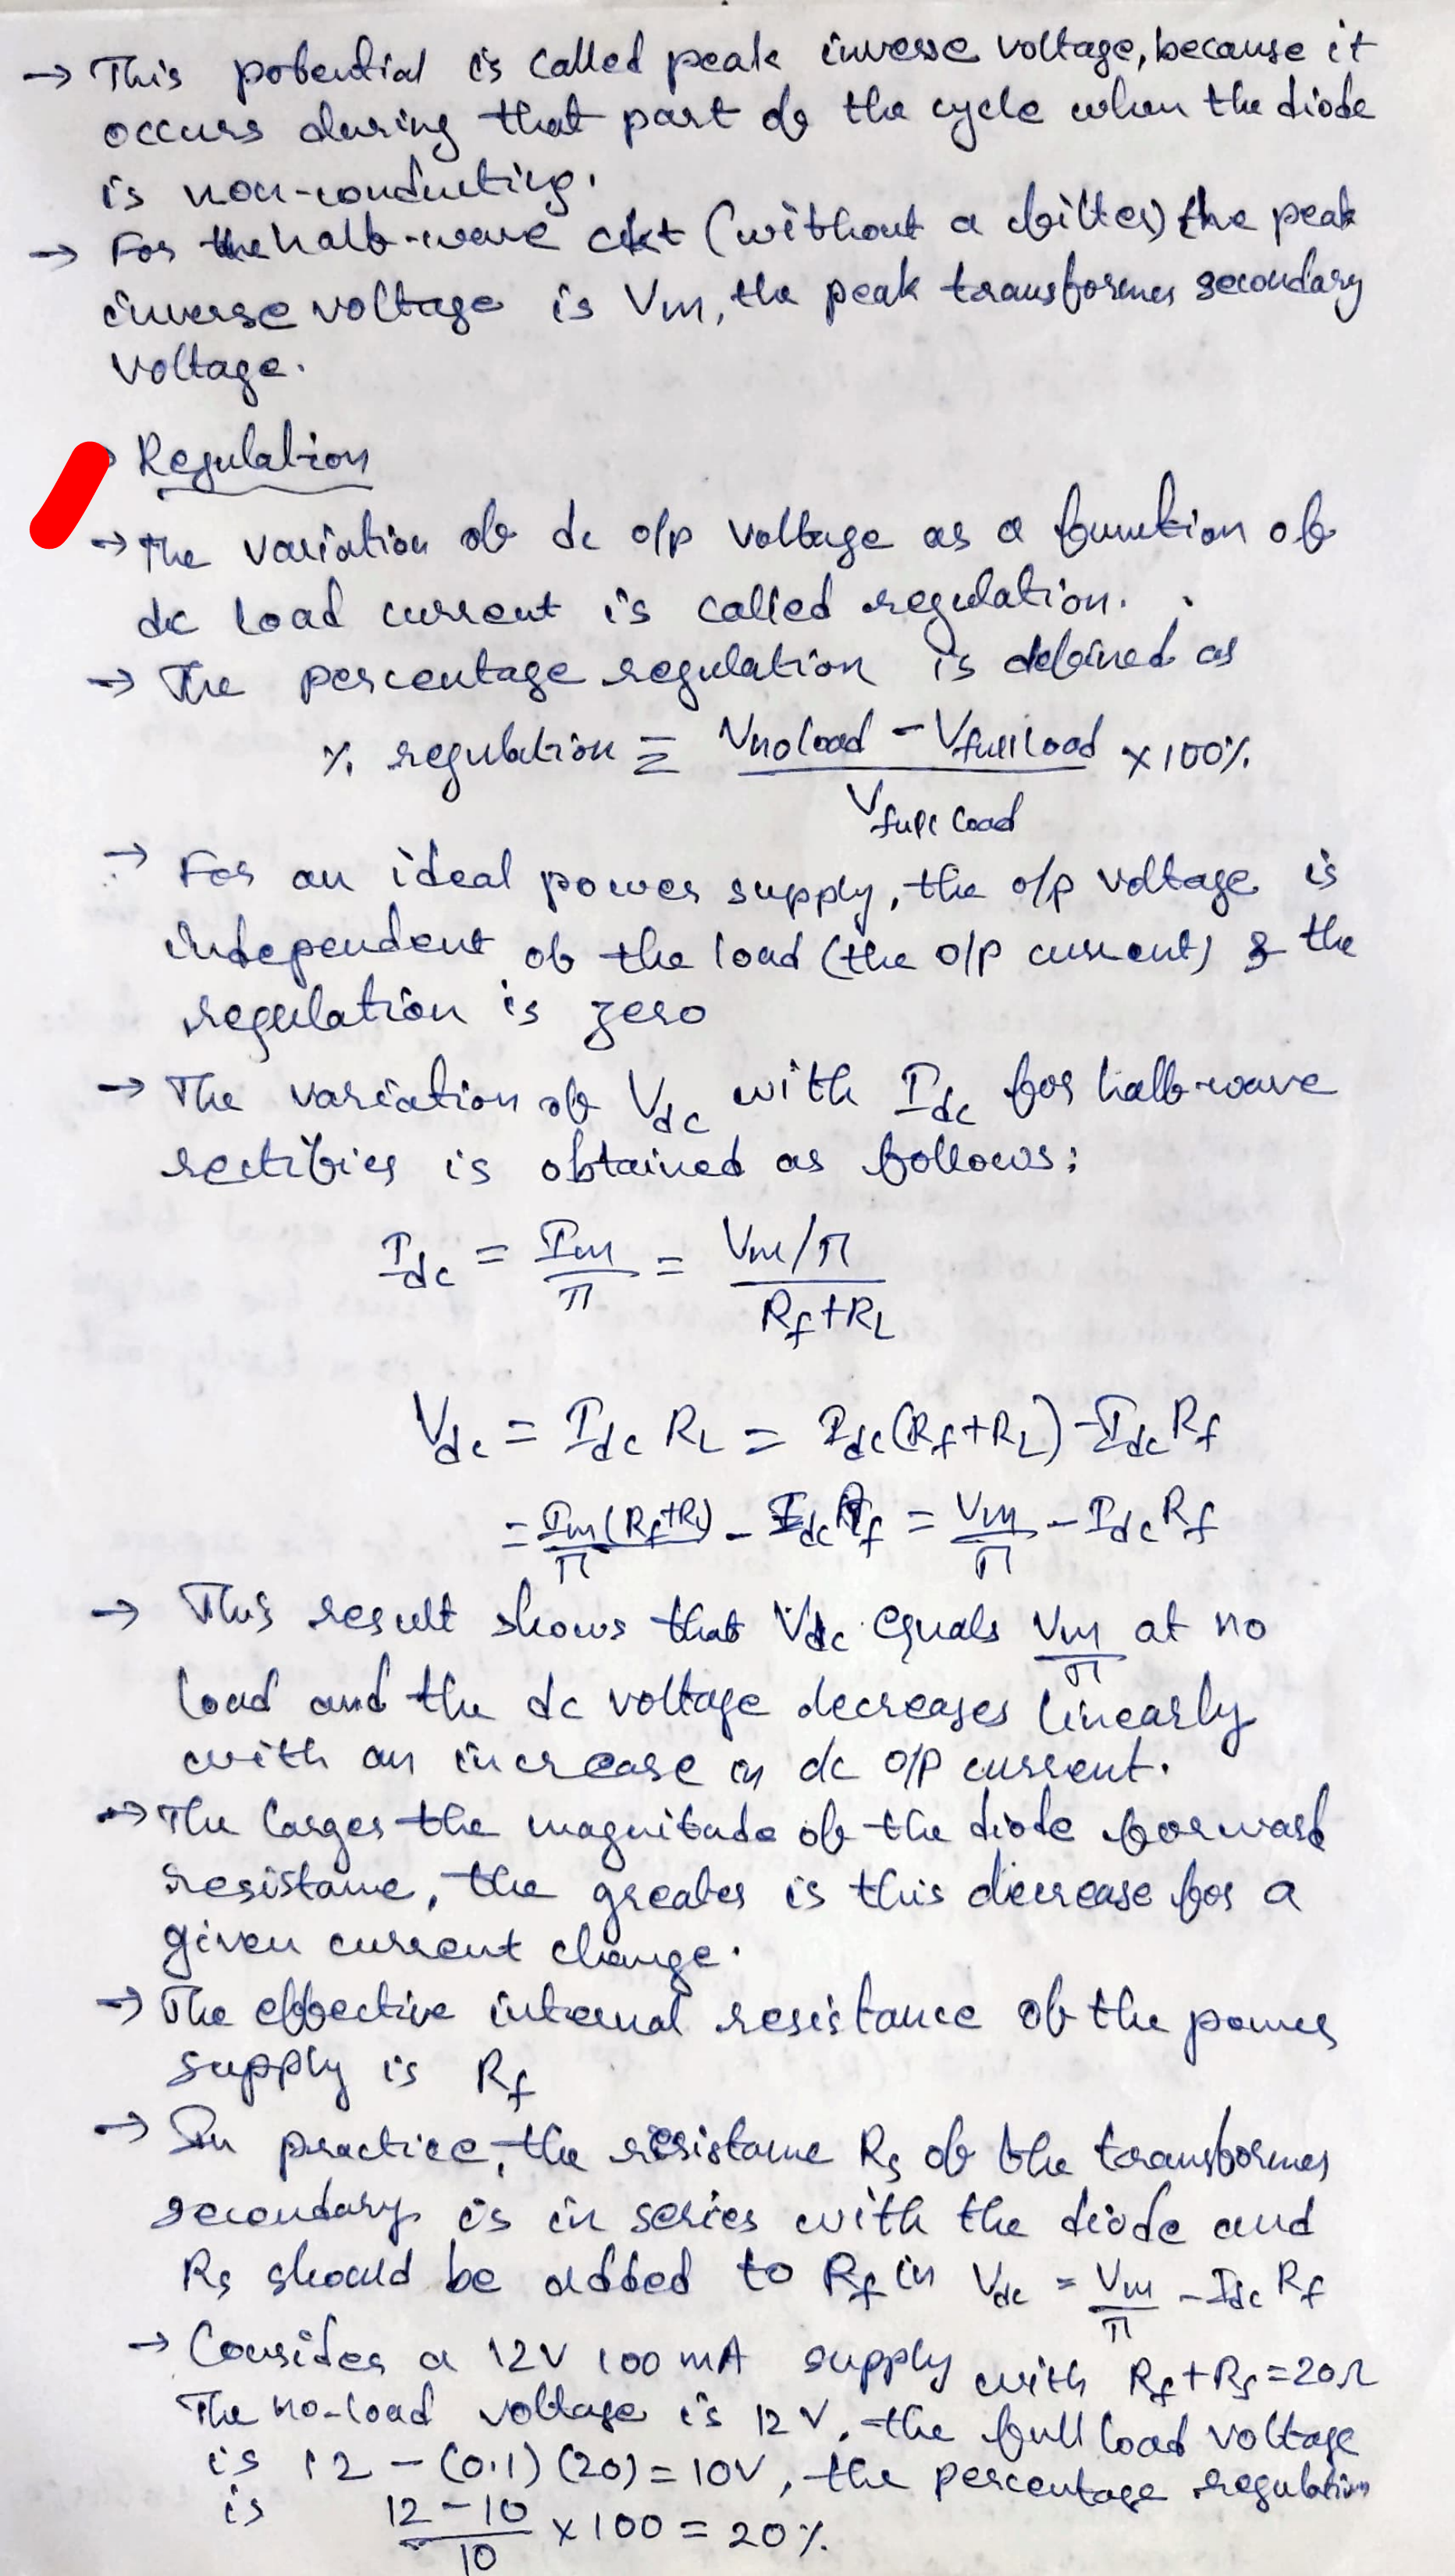 → This potential is called peak inverse voltage, because it
occurs during that part of the cycle when the diode
is non-conducting.
→ For the half-wave ckt (without a filter) the peak
inverse voltage is Vm, the peak transformer secondary
voltage.
Regulation
→ The variation of dc o/p voltage as a function of
dc load current is called regulation.
→ The percentage regulation is defined as
% regulation ≡ (Vno load - Vfull load) / Vfull load × 100%
→ For an ideal power supply, the o/p voltage is
independent of the load (the o/p current) & the
regulation is zero
→ The variation of Vdc with Idc for half-wave
rectifier is obtained as follows:
Idc = Im/π = (Vm/π) / (Rf+RL)
Vdc = Idc RL = Idc(Rf+RL) - Idc Rf
= Im(Rf+RL)/π - Idc Rf = Vm/π - Idc Rf
→ This result shows that Vdc equals Vm/π at no
load and the dc voltage decreases linearly
with an increase in dc o/p current.
→ The larger the magnitude of the diode forward
resistance, the greater is this decrease for a
given current change.
→ The effective internal resistance of the power
supply is Rf
→ In practice, the resistance Rs of the transformer
secondary is in series with the diode and
Rs should be added to Rf in Vdc = Vm/π - Idc Rf
→ Consider a 12V 100 mA supply with Rf+Rs=20Ω
The no-load voltage is 12V, the full load voltage
is 12 - (0.1) (20) = 10V, the percentage regulation
is (12-10)/10 × 100 = 20%